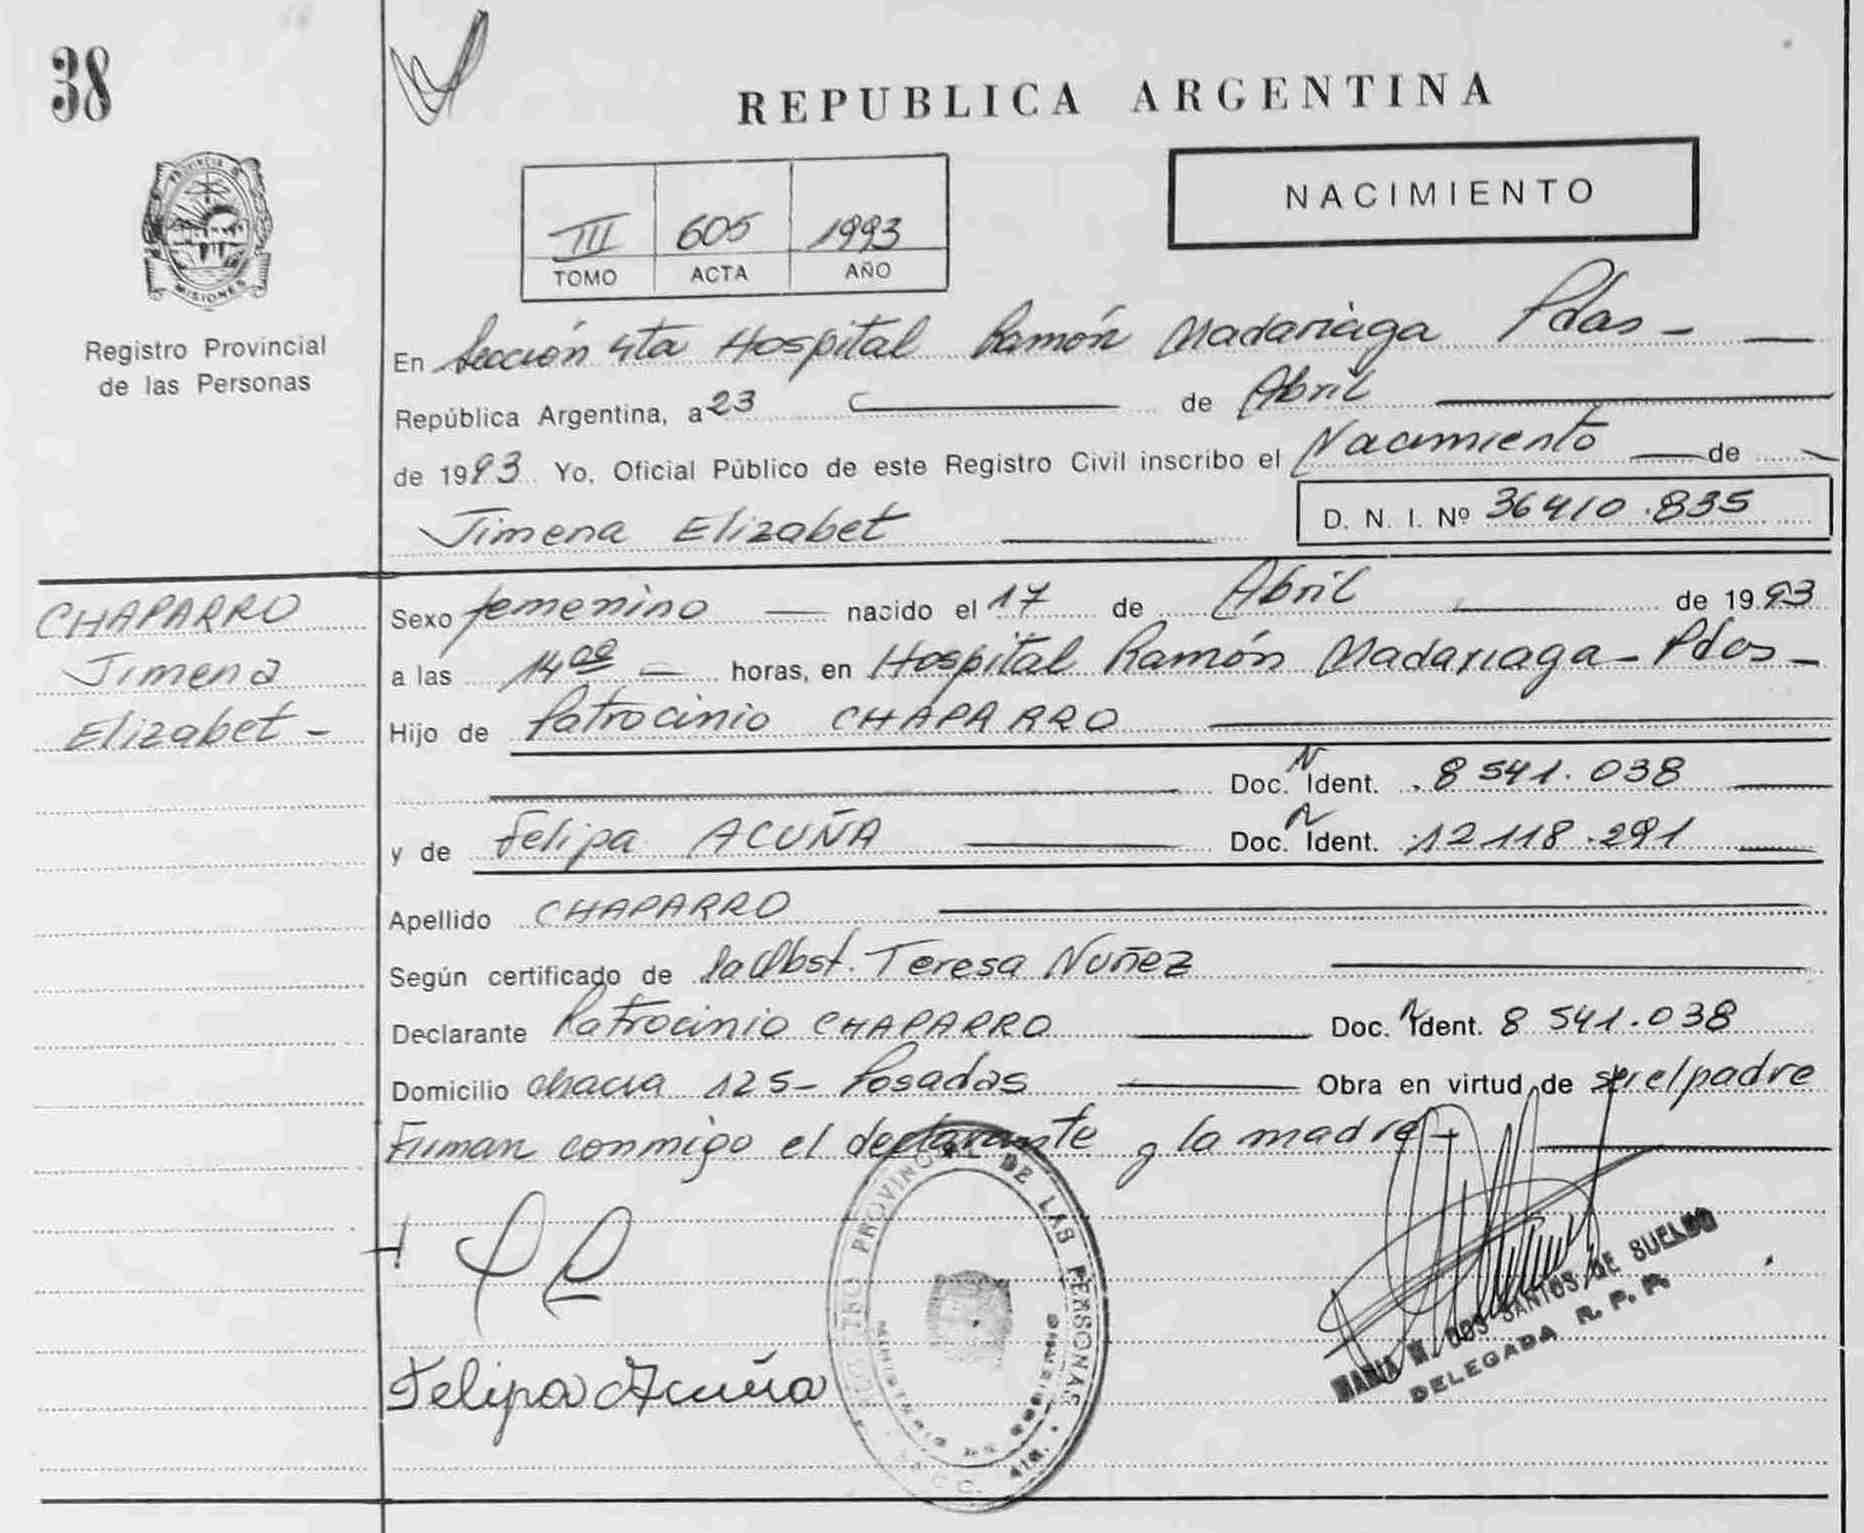 38
REPUBLICA ARGENTINA
PROVINCIA DE
MISIONES
Registro Provincial
de las Personas
III 605 1993
TOMO ACTA AÑO
NACIMIENTO
En Sección 4ta Hospital Ramón Madariaga Pdas -
República Argentina, a 23 de Abril
de 1993 Yo, Oficial Público de este Registro Civil inscribo el Nacimiento de
Jimena Elizabet
D. N. I. Nº 36410.835
CHAPARRO
Jimena
Elizabet -
Sexo femenino nacido el 17 de Abril de 1993
a las 14 00 horas, en Hospital Ramón Madariaga - Pdas -
Hijo de Patrocinio CHAPARRO
Doc. N Ident. 8 541.038
y de Felipa ACUÑA Doc. N Ident. 12 118.291
Apellido CHAPARRO
Según certificado de la Obst. Teresa Nuñez
Declarante Patrocinio CHAPARRO Doc. N Ident. 8 541.038
Domicilio chacra 125 - Posadas Obra en virtud de ser el padre
Firman conmigo el declarante y la madre -
PROVINCIAL DE LAS PERSONAS
MINISTERIO DE GOBIERNO
Felipa Acuña
MARIA M. DOS SANTOS DE SUELDO
DELEGADA R. P. P.